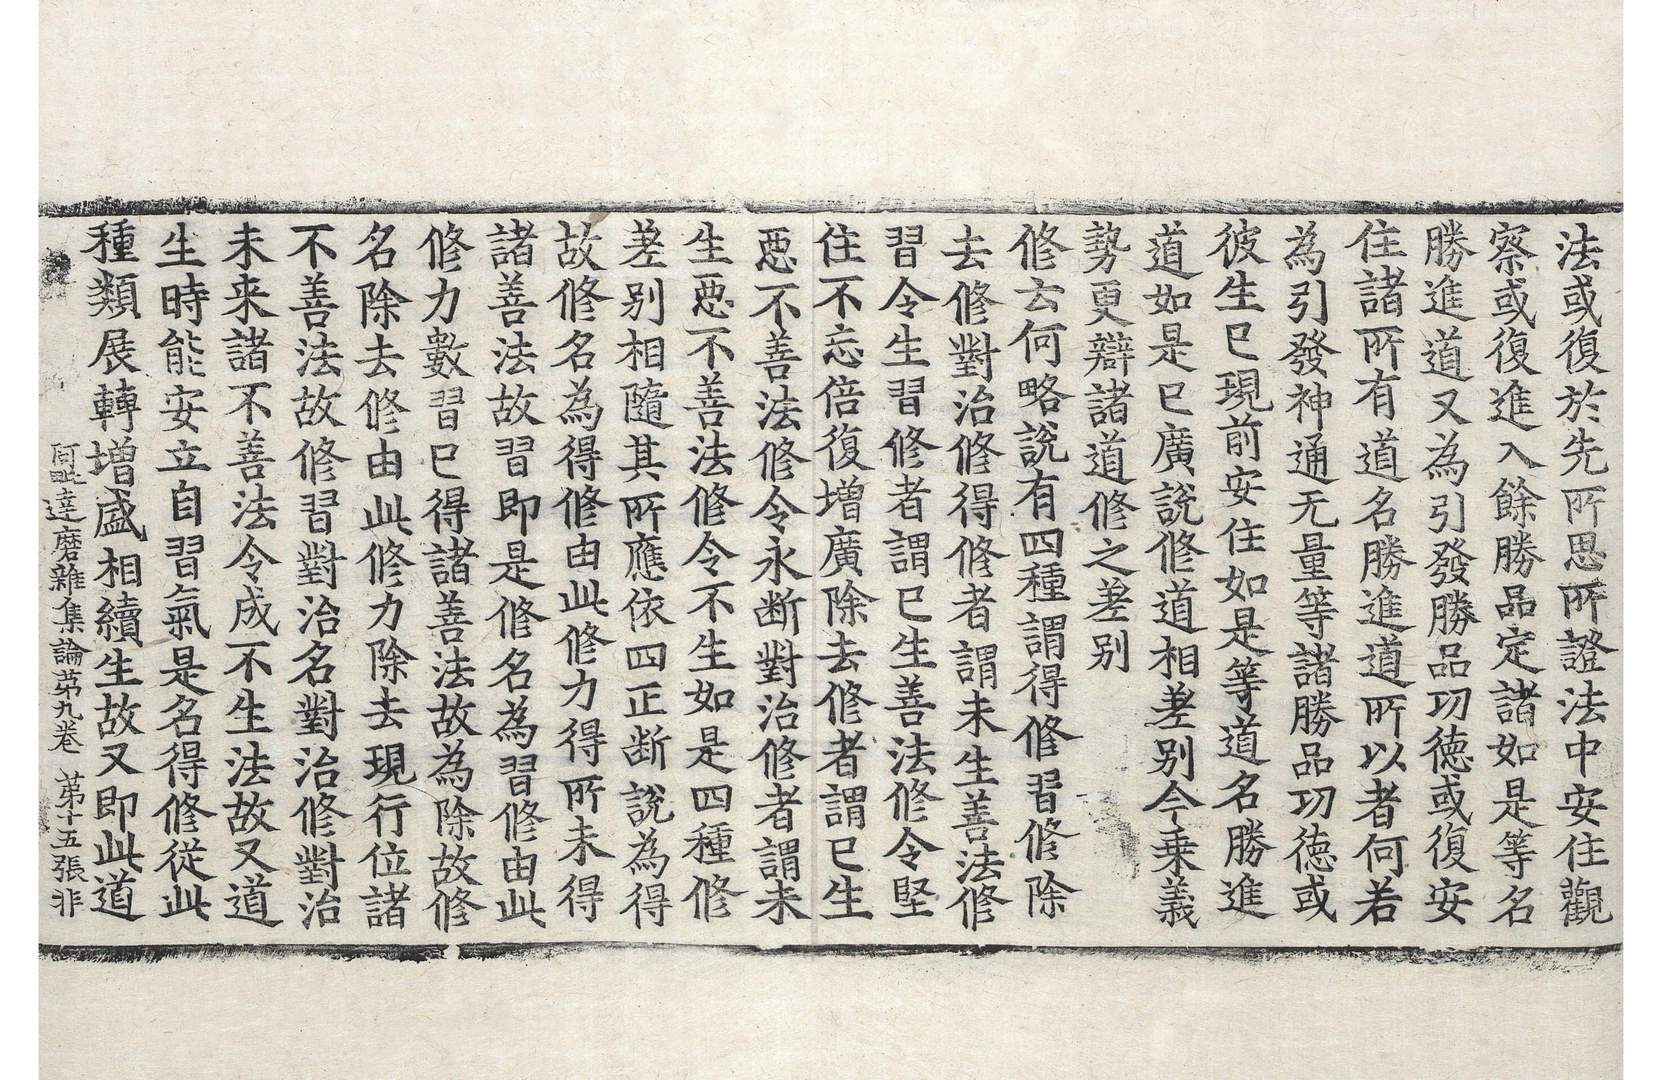 法或復於先所思所證法中安住觀
察或復進入餘勝品定諸如是等名
勝進道又為引發勝品功徳或復安
住諸所有道名勝進道所以者何若
為引發神通无量等諸勝品功徳或
彼生已現前安住如是等道名勝進
道如是已廣說修道相差别今乗義
勢更辯諸道修之差别
修云何略說有四種謂得修習修除
去修對治修得修者謂未生善法修
習令生習修者謂已生善法修令堅
住不忘倍復增廣除去修者謂已生
惡不善法修令永断對治修者謂未
生惡不善法修令不生如是四種修
差别相隨其所應依四正断說為得
故修名為得修由此修力得所未得
諸善法故習即是修名為習修由此
修力數習已得諸善法故為除故修
名除去修由此修力除去現行位諸
不善法故修習對治名對治修對治
未来諸不善法令成不生法故又道
生時能安立自習氣是名得修從此
種類展轉增盛相續生故又即此道
阿毗達磨雜集論苐九卷 苐十五張 非